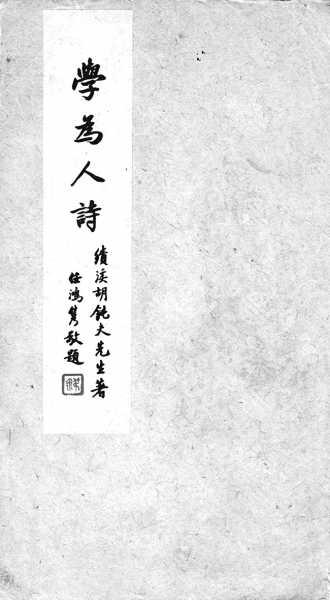 學為人詩
績溪胡鈍夫先生著
任鴻雋敬題